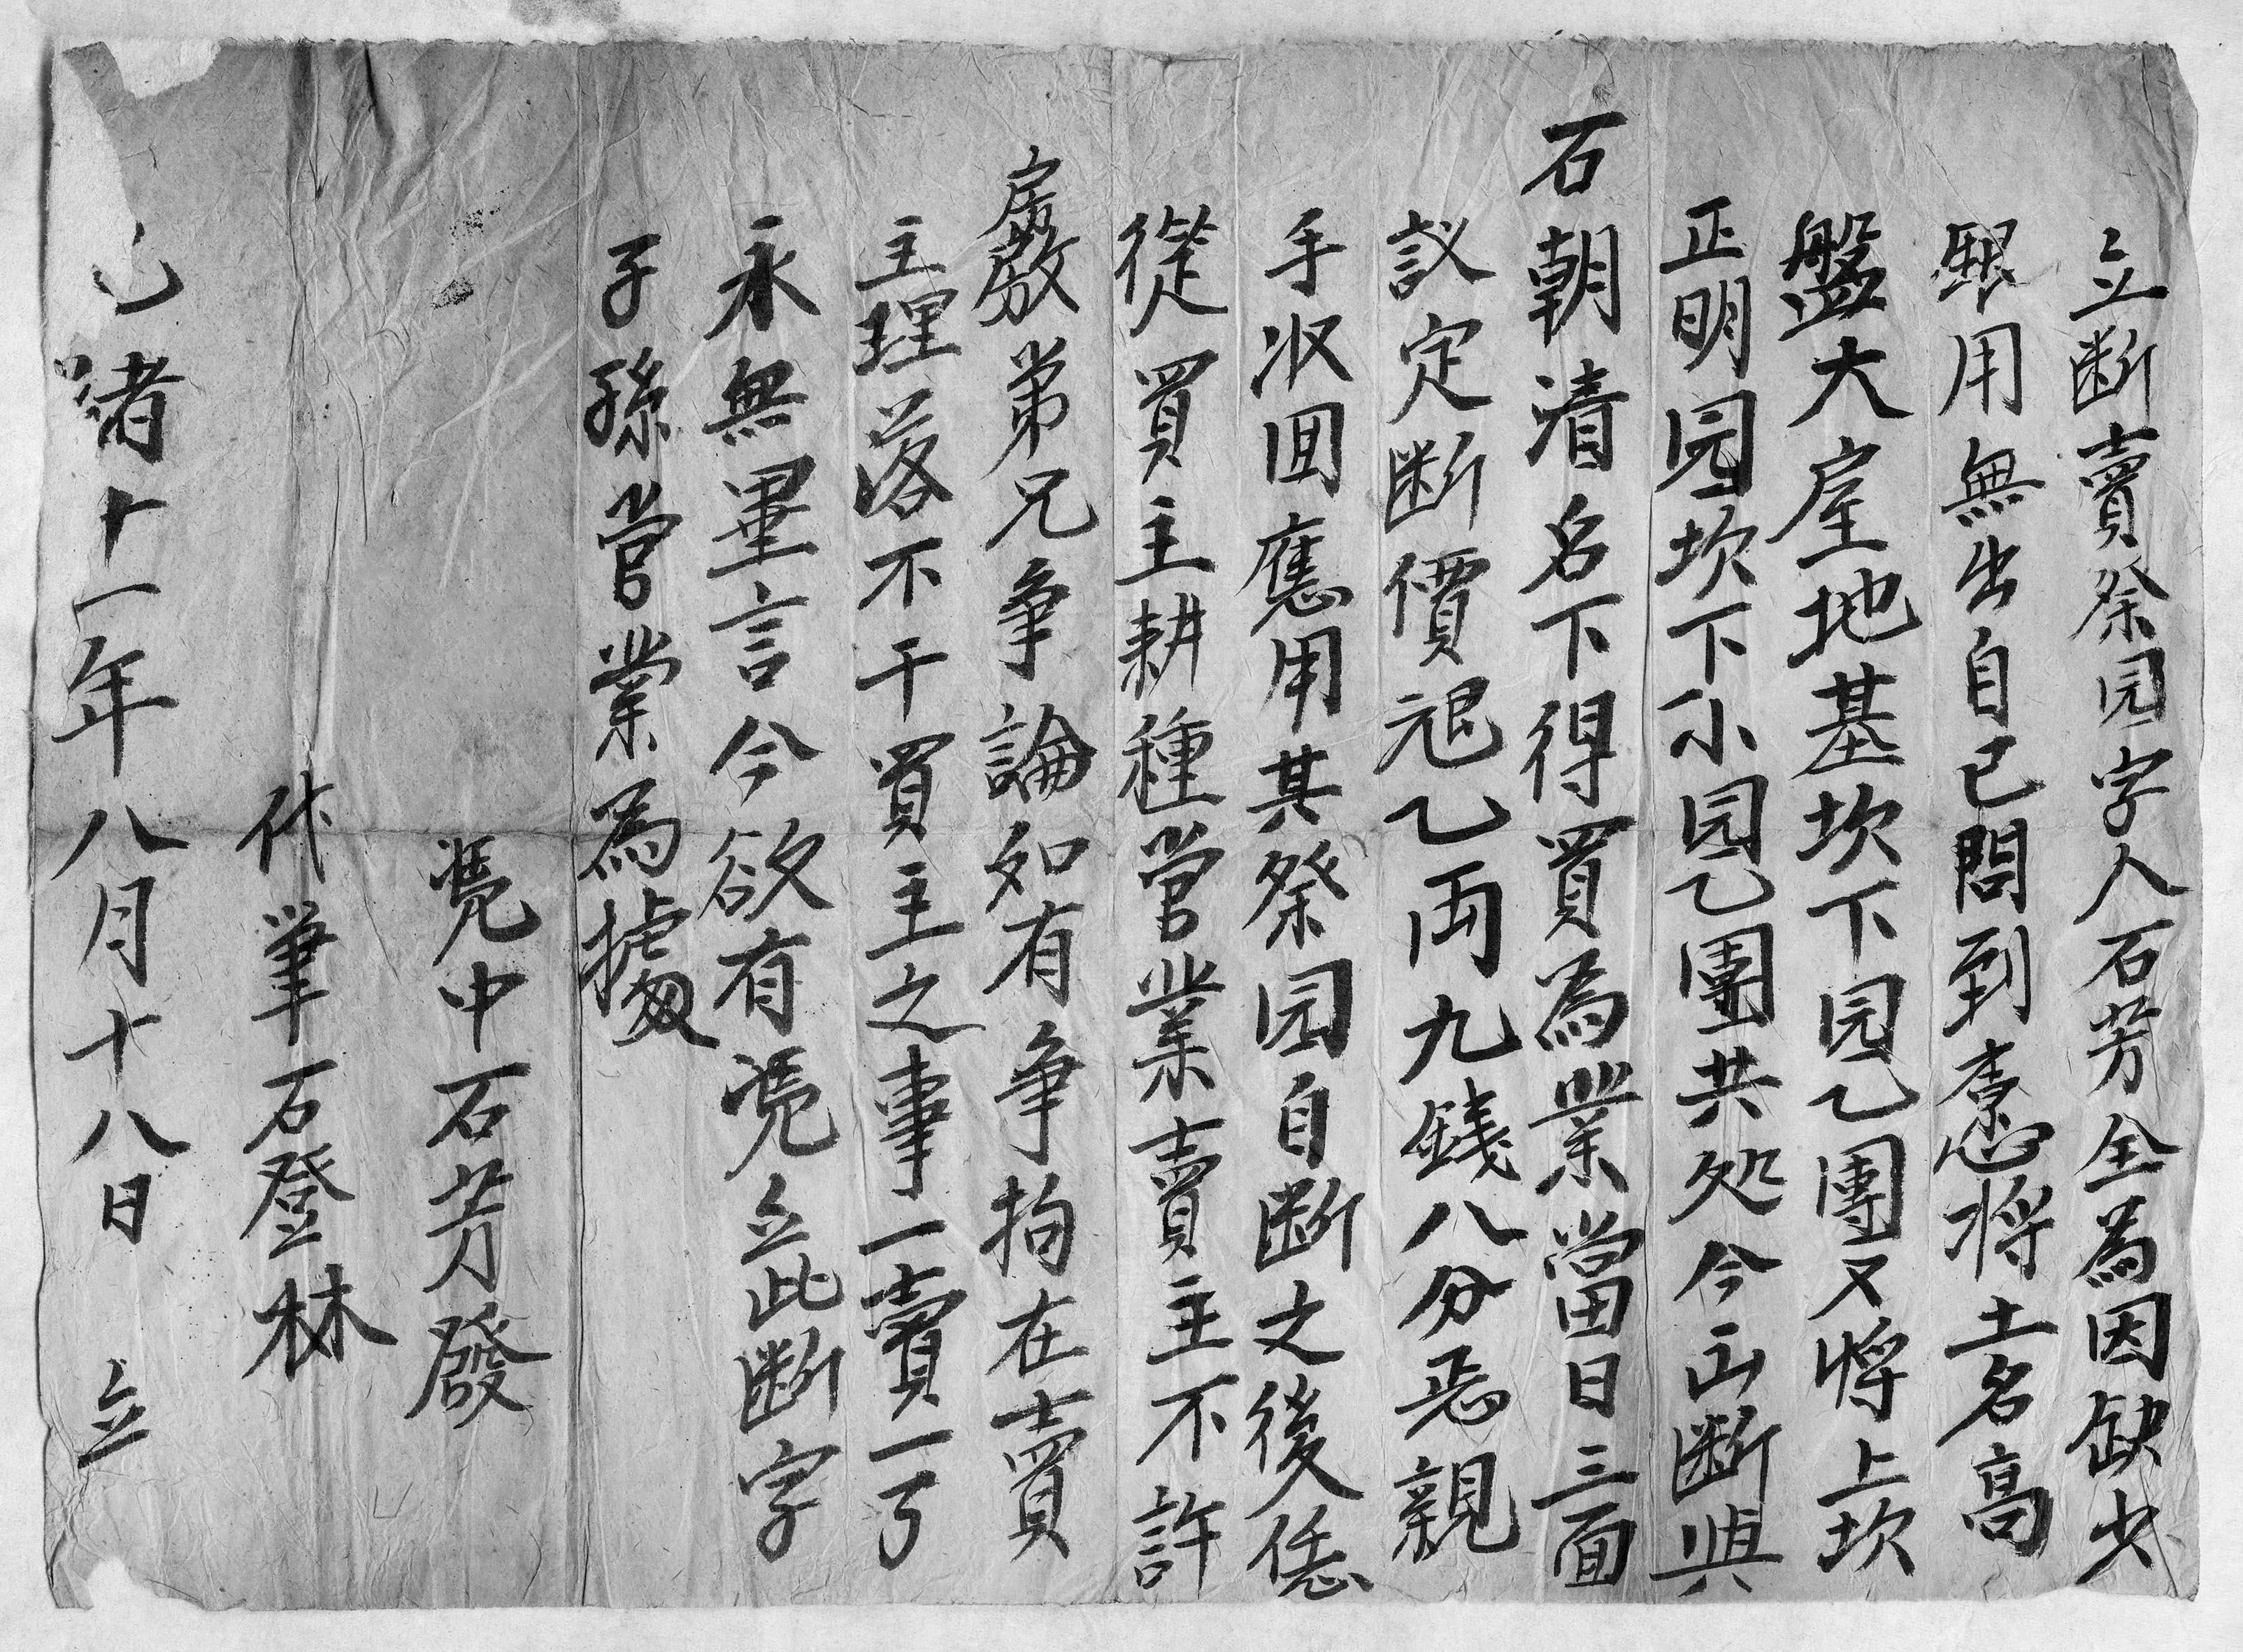 立断賣祭园字人石芳全為因缺少
銀用無出自已問到憑將土名高
盤大屋地基坎下园乙團又將上坎
正明园坎下小园乙團共处今出断與
石朝清名下得買為業當日三面
議定断價艮乙両九錢八分憑親
手收回應用其祭园自断之後恁
從買主耕種營業賣主不許
房敎弟兄争論如有争拘在賣
主理落不干買主之事一賣一了
永無異言今欲有憑立此断字
子孫营業為據
憑中石芳發
代筆石登林
緒十一年八月十八日立